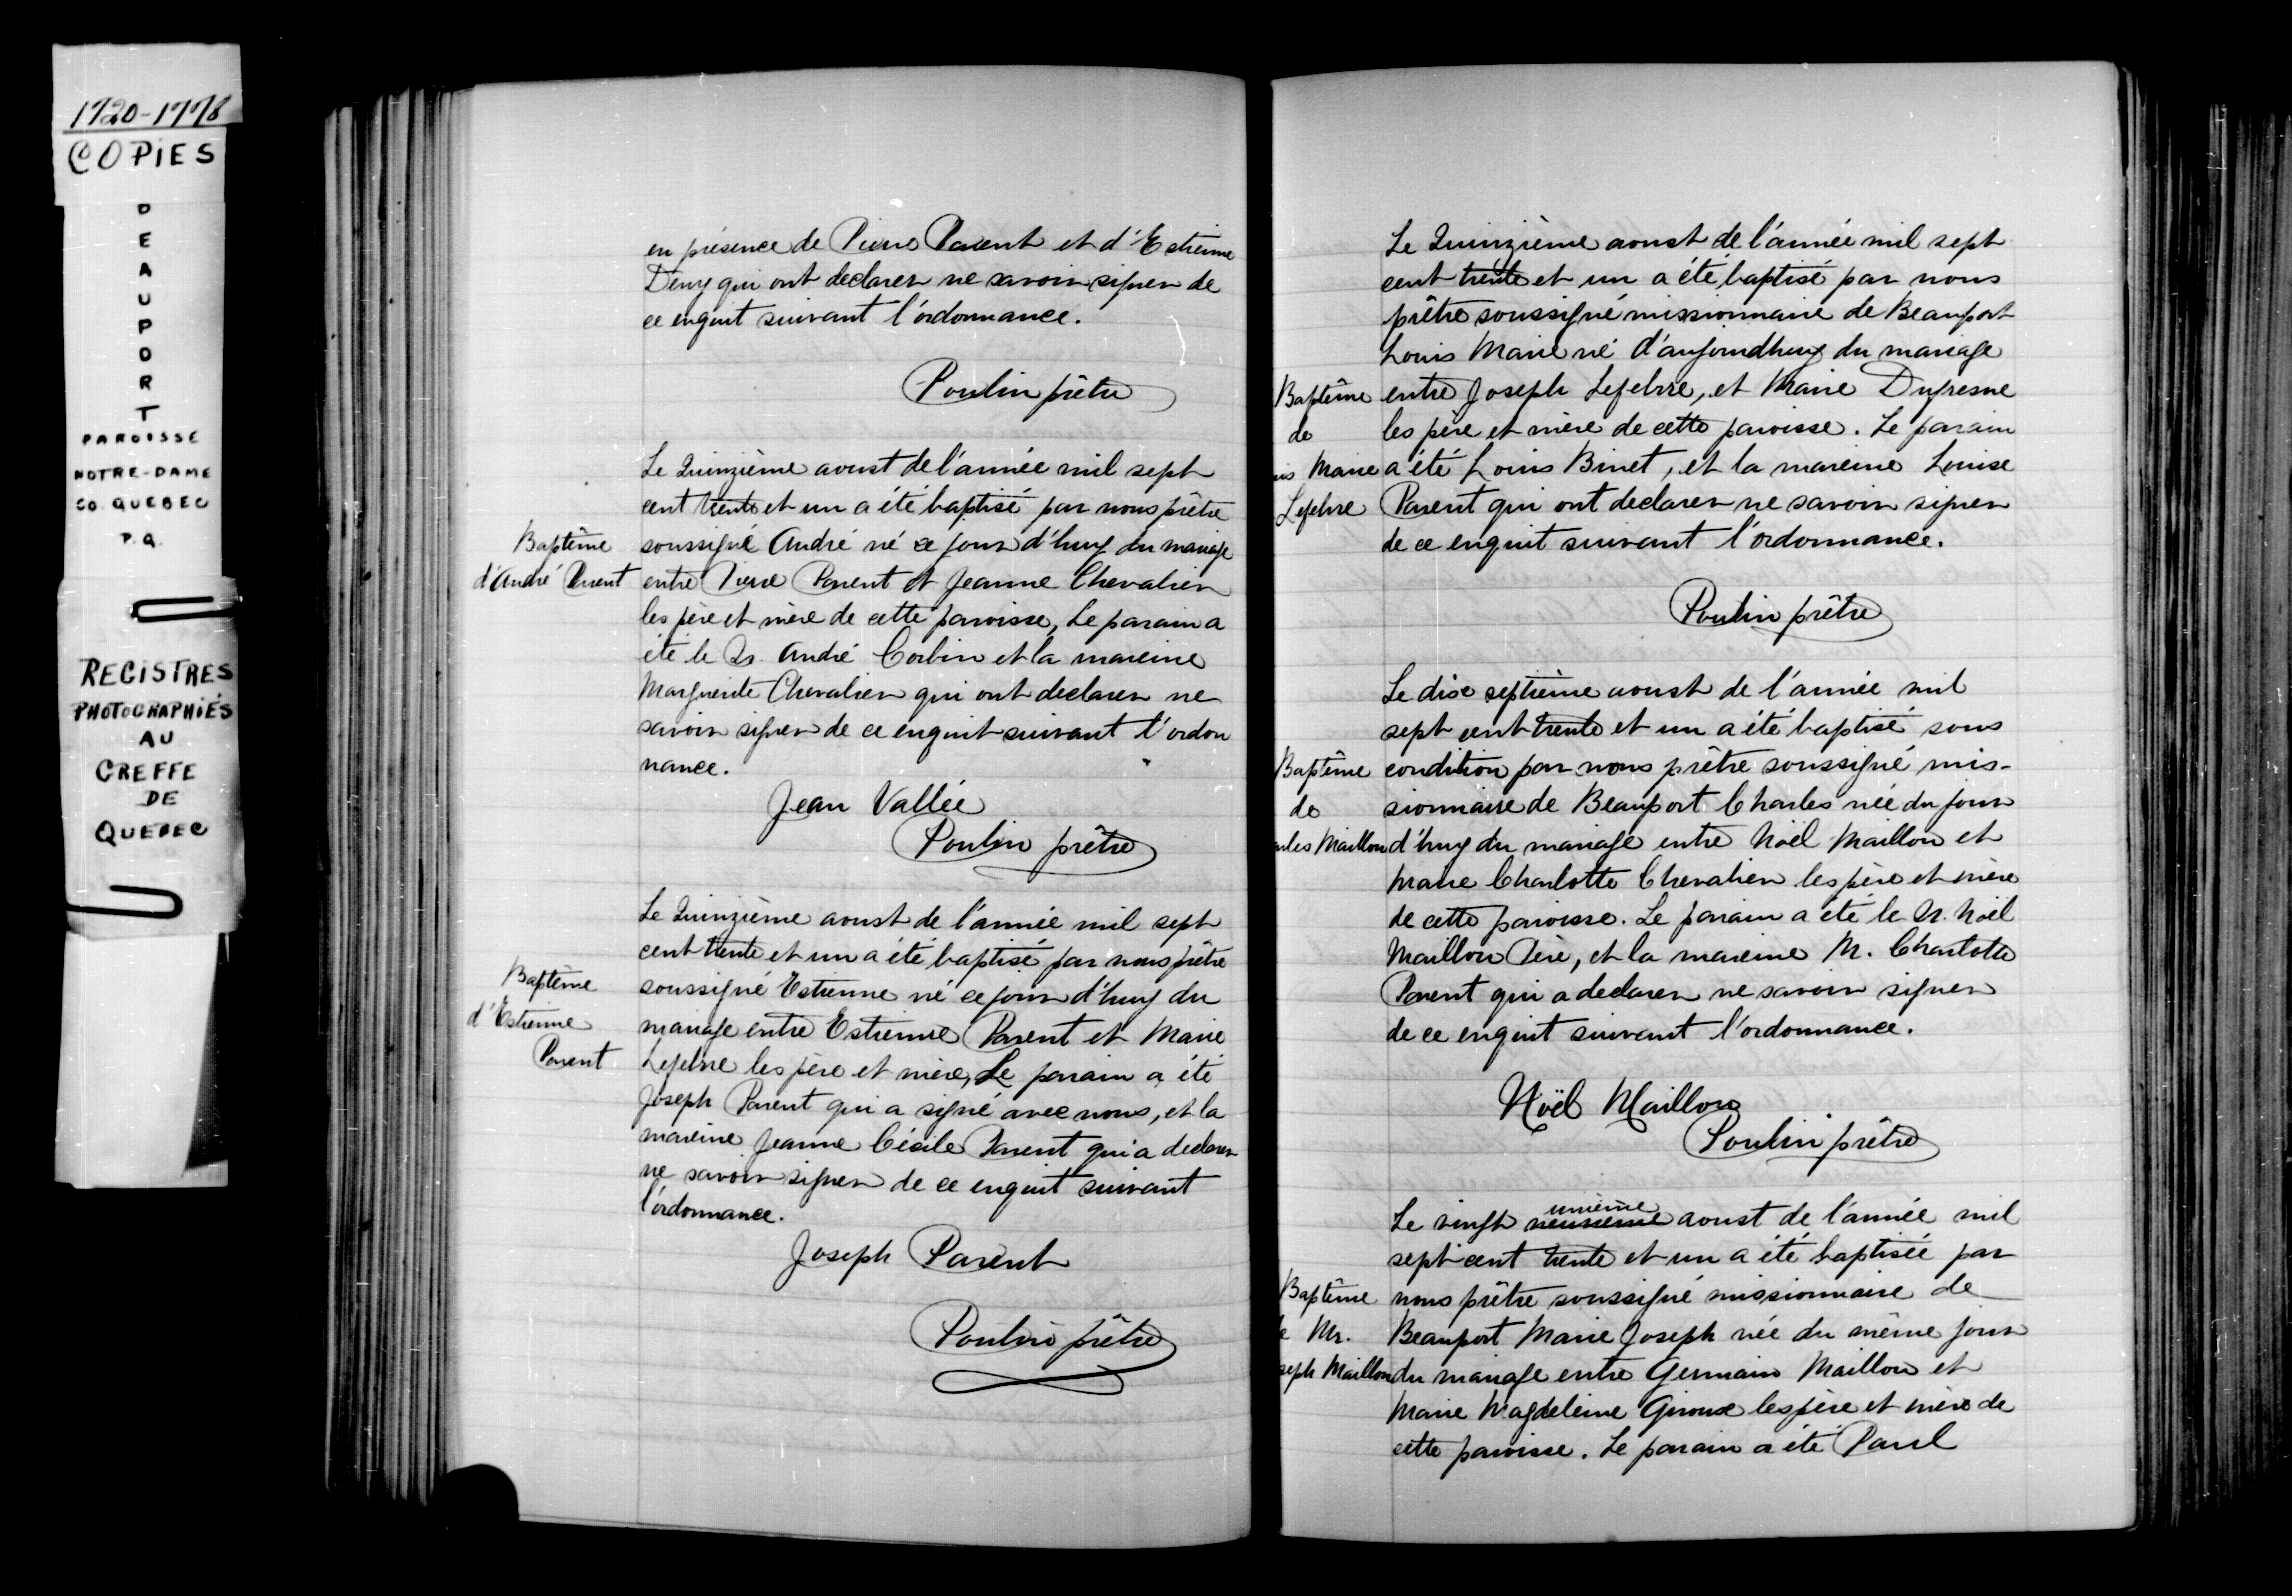 1720-1778
COPIES
DEAUPORT
PAROISSE
NOTRE-DAME
CO. QUEBEC
P.Q.
REGISTRES
PHOTOGRAPHIÉS
AU
GREFFE
DE
QUEBEC
en présence de Pierre Parent et d'Estienne
Deny qui ont declarer ne savoir signer de
ce enquit suivant l'ordonnance.
Poulin prêtre
Baptême
d'André Parent
Le Quinzième aoust de l'année mil sept
cent trente et un a été baptisé par nous prêtre
soussigné André né ce jour d'huy du mariage
entre Pierre Parent et Jeanne Chevalier
les père et mère de cette paroisse, Le parain a
été le Sr. André Corbin et la mareine
Marguerite Chevalier qui ont declarer ne
savoir signer de ce enquit suivant l'ordon
nance.
Jean Vallée
Poulin prêtre
Baptême
d'Estienne
Parent
Le Quinzième aoust de l'année mil sept
cent trente et un a été baptisé par nous prêtre
soussigné Estienne né ce jour d'huy du
mariage entre Estienne Parent et Marie
Lefebvre les père et mère, Le parain a été
Joseph Parent qui a signé avec nous, et la
mareine Jeanne Cécile Parent qui a declarer
ne savoir signer de ce enquit suivant
l'ordonnance.
Joseph Parent
Poulin prêtre
Baptême
de
uis Marie
Lefebvre
Le Quinzième aoust de l'année mil sept
cent trente et un a été baptisé par nous
prêtre soussigné missionnaire de Beauport
Louis Marie né d'aujourdhuy du mariage
entre Joseph Lefebvre, et Marie Dufresne
les père et mère de cette paroisse. Le parain
a été Louis Binet, et la mareine Louise
Parent qui ont declarer ne savoir signer
de ce enquit suivant l'ordonnance.
Poulin prêtre
Baptême
de
arles Maillou
Le dix septième aoust de l'année mil
sept cent trente et un a été baptisé sous
condition par nous prêtre soussigné mis-
sionnaire de Beauport Charles née du jour
d'huy du mariage entre Noël Maillou et
Marie Charlotte Chevalier les père et mère
de cette paroisse. Le parain a été le Sr. Noël
Maillou Père, et la mareine M. Charlotte
Parent qui a declarer ne savoir signer
de ce enquit suivant l'ordonnance.
Noël Maillou
Poulin prêtre
Baptême
e Mr.
seph Maillou
unième
Le vingt neuvième aoust de l'année mil
sept cent trente et un a été baptisée par
nous prêtre soussigné missionnaire de
Beauport Marie Joseph née du même jour
du mariage entre Germain Maillou et
Marie Magdeleine Giroux les père et mère de
cette paroisse. Le parain a été Paul